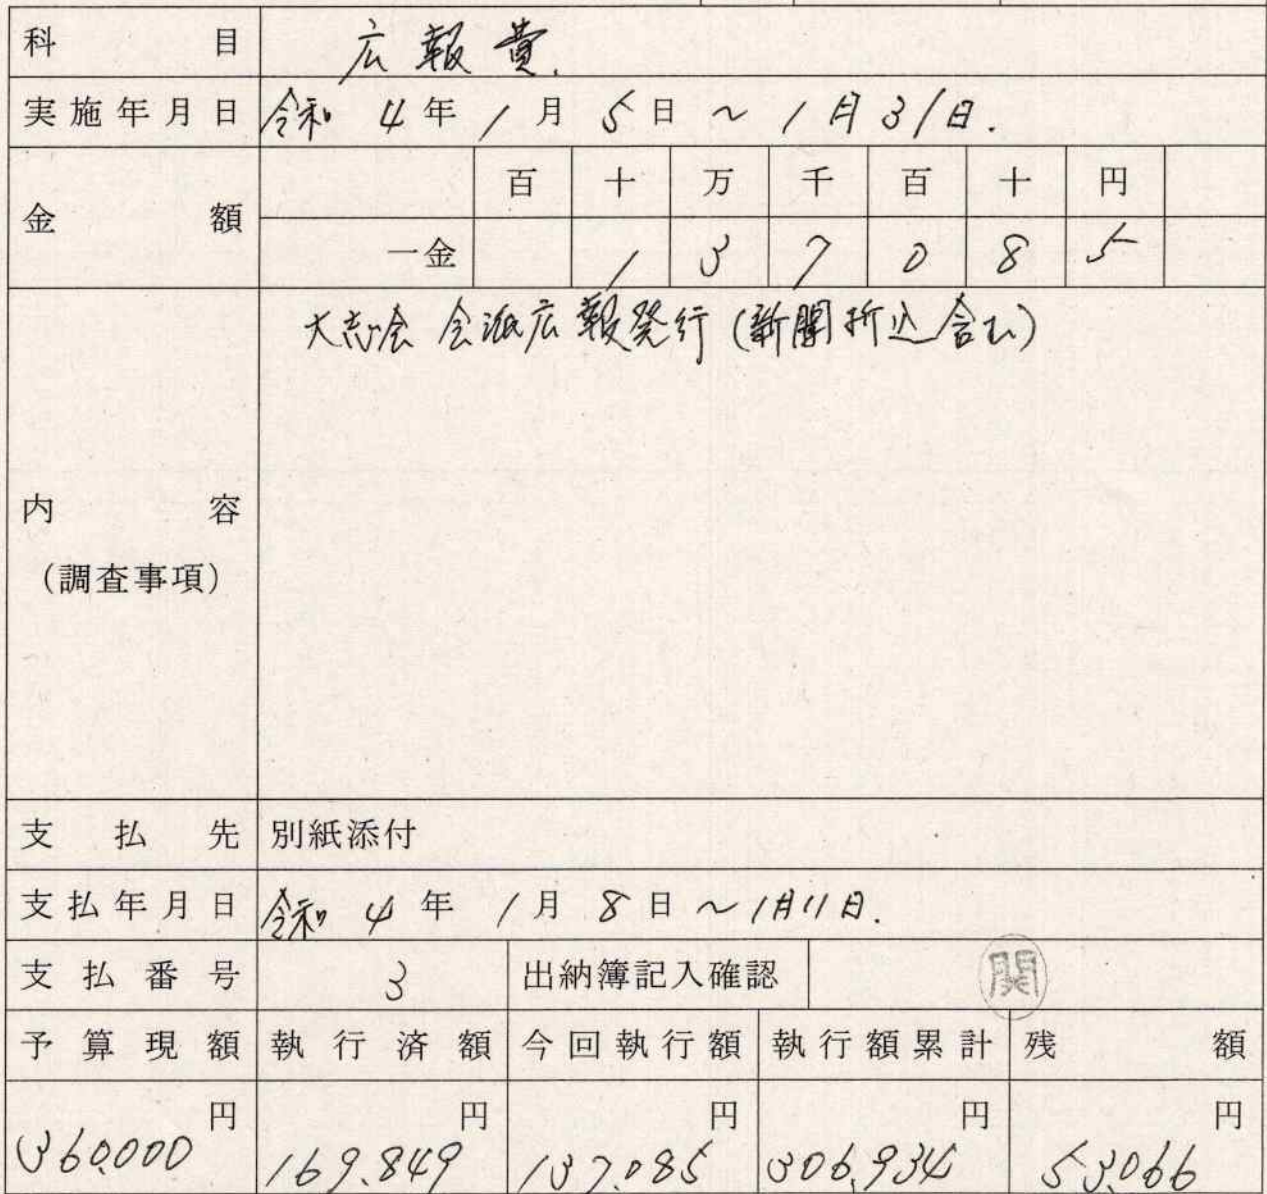 科目 広報費.
実施年月日 令和 4年 1月 5日 ~ 1月31日.
百 十 万 千 百 十 円
金額
一金 1 3 7 0 8 5
大志会 会派広報発行(新聞折込含む)
内容
(調査事項)
支払先 別紙添付
支払年月日 令和 4年 1月 8日 ~1月11日.
支払番号 3 出納簿記入確認 関
予算現額 執行済額 今回執行額 執行額累計 残額
円 円 円 円 円
360,000 169.849 137.085 306,934 53,066